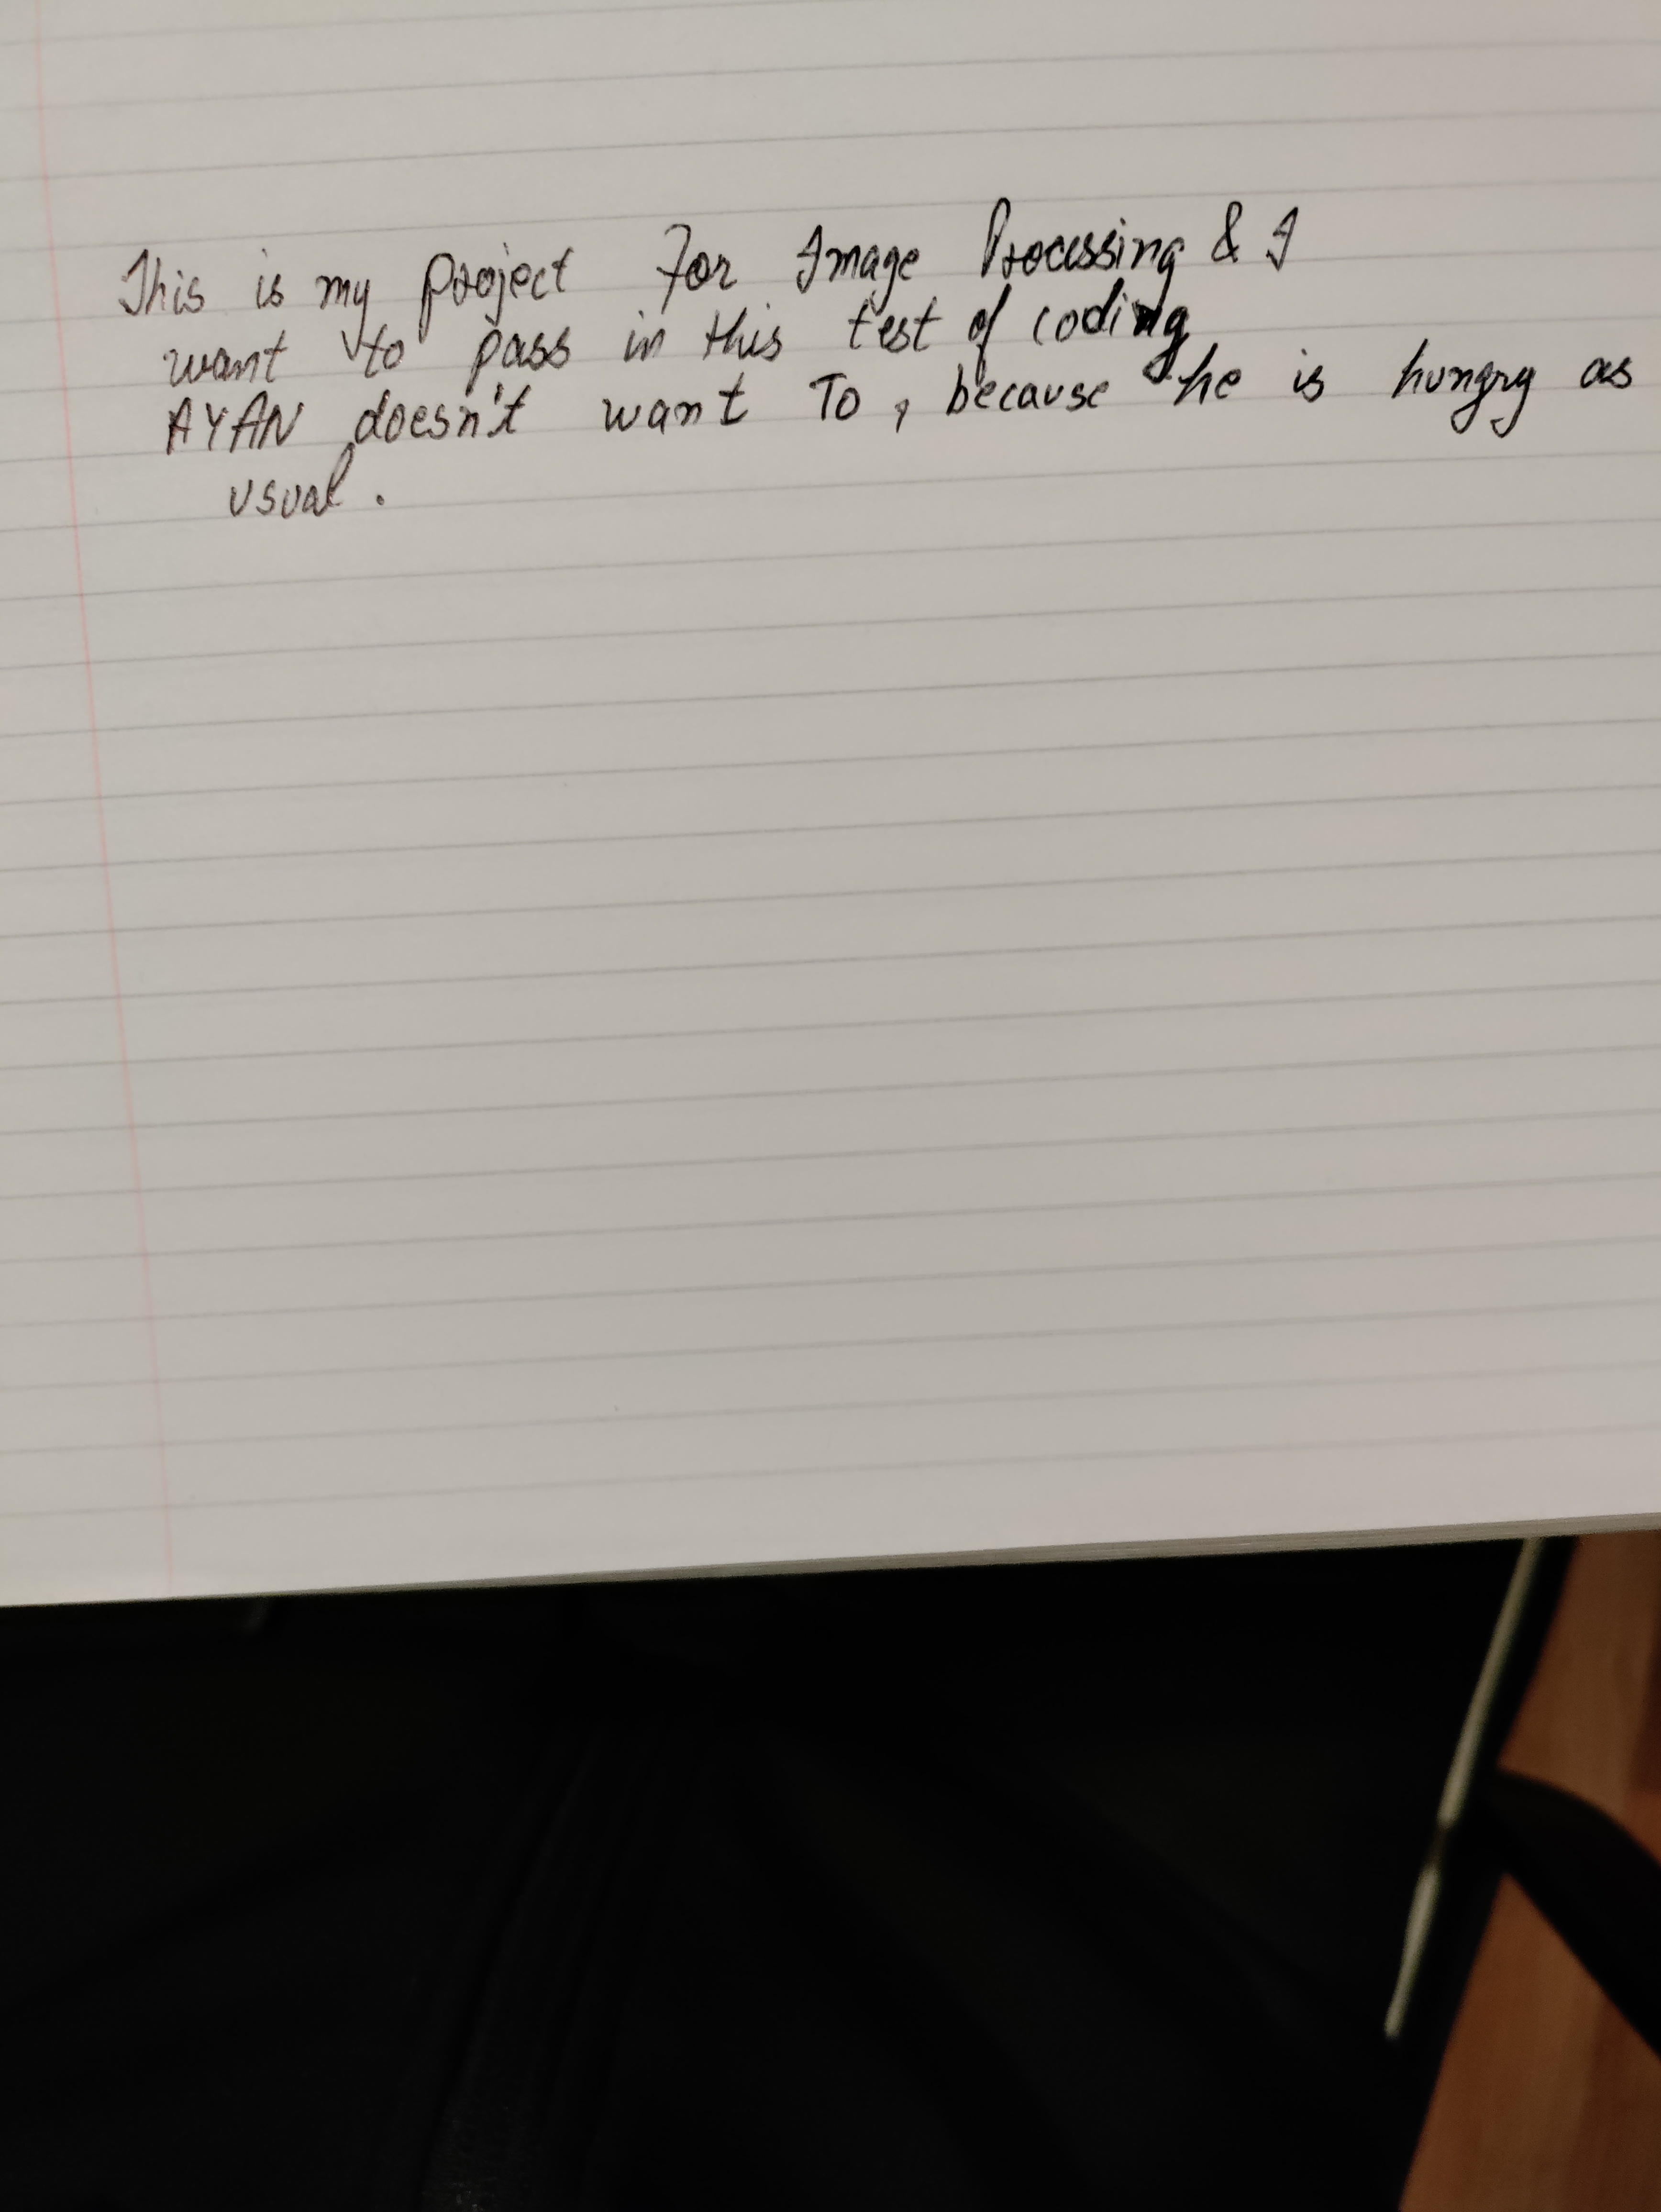 This is my project For Image Processing & I
want to pass in this test of coding
AYAN doesn't want To, because he is hungry as
usual.